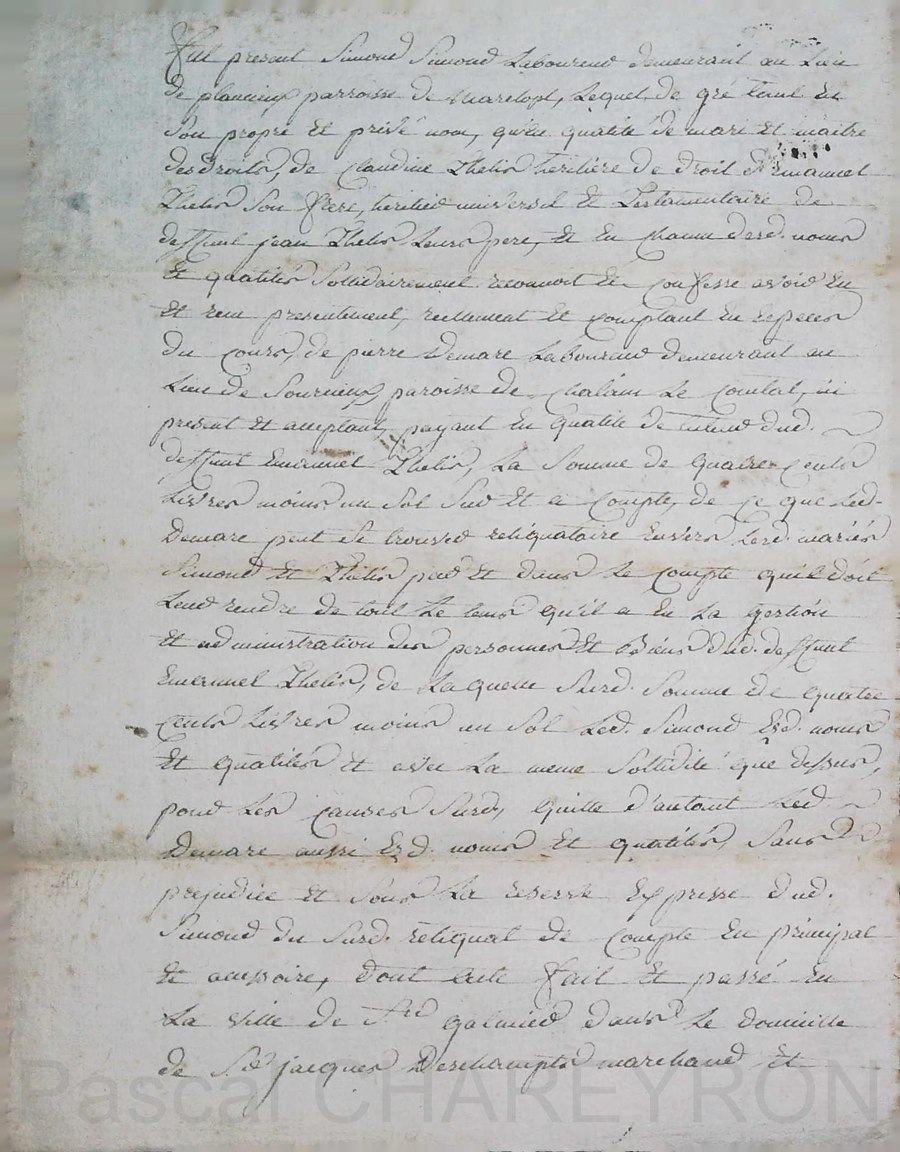 Fut present Simond Simond Laboureur demeurant au Lieu
de planieux parroisse de Marclopt, Lequel de gré tant En
Son propre Et privé nom, qu'en qualité de mari Et maitre
des droits, de Claudine Thelis heritière de droit d'Emanuel
Thelis Son frere, heritier universel Et Testamentaire de
deffunt jean Thelis Leurs pere, Et En Chacun desd. noms
Et qualités Sollidairement reconnoit Et Confesse avoir Eu
Et reçu presentement, reellement Et Comptant En Especes
du Cours, de pierre Demare Laboureur demeurant au
Lieu de Sourcieux, paroisse de Chalain Le Comtal, ici
present Et acceptant, payant En qualité de tuteur dud.
deffunt Emanuel Thelis, La Somme de quatre Cents
Livres moins un Sol Sur Et a Compte, de Ce que Led.
Demare peut Se trouver reliquataire Envers Lesd. mariés
Simond Et Thelis par Et dans Le Compte qu'il doit
Leur rendre de tout Le tems qu'il a Eu La gestion
Et administration des personnes Et Biens dud. deffunt
Emanuel Thelis, de Laquelle Surd. Somme de quatre
Cents Livres moins un Sol Led. Simond Esd. noms
Et qualités Et avec La meme Sollidité que dessus,
pour Les Causes Surd, quitte d'autant Led.
Demare aussi Esd. noms Et qualités, Sans
prejudice Et Sous La reserve Expresse dud.
Simond du Surd. reliquat de Compte En principal
Et accessoire, dont acte fait Et passé En
La ville de St galmier dans Le domicille
de Sr jacques Deschampts marchand Et
Pascal CHAREYRON